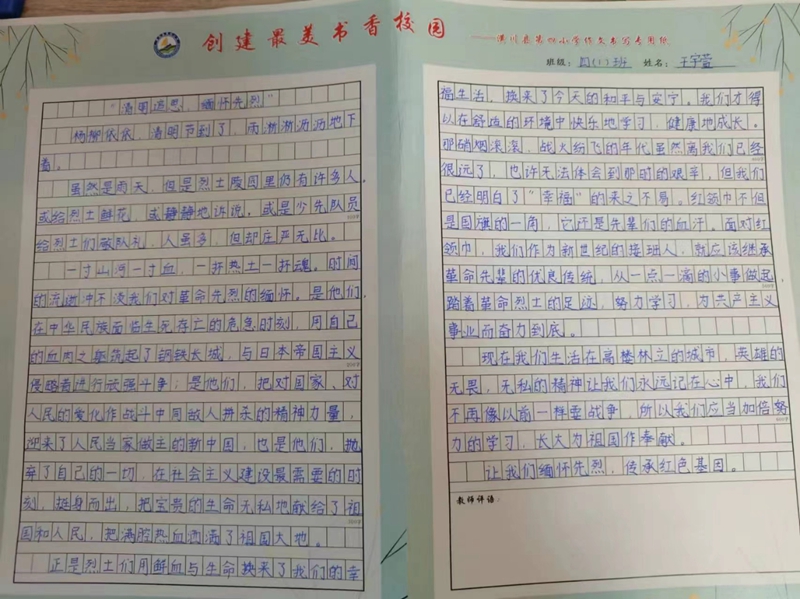 创建最美书香校园
——潢川县第四小学作文书写专用纸
班级：四(1)班 姓名：王宇萱
“清明追思，缅怀先烈”
杨柳依依，清明节到了，雨淅淅沥沥地下
着。
虽然是雨天，但是烈士陵园里仍有许多人。
或给烈士鲜花，或静静地诉说，或是少先队员
给烈士们敬队礼，人虽多，但却庄严无比。
一寸山河一寸血，一抔热土一抔魂。时间
的流逝冲不淡我们对革命先烈的缅怀。是他们，
在中华民族面临生死存亡的危急时刻，用自己
的血肉之躯筑起了钢铁长城，与日本帝国主义
侵略者进行顽强斗争；是他们，把对国家、对
人民的爱化作战斗中同敌人拼杀的精神力量，
迎来了人民当家做主的新中国，也是他们，抛
弃了自己的一切，在社会主义建设最需要的时
刻，挺身而出，把宝贵的生命无私地献给了祖
国和人民，把满腔热血洒满了祖国大地。
正是烈士们用鲜血与生命换来了我们的幸
福生活，换来了今天的和平与安宁。我们才得
以在舒适的环境中快乐地学习，健康地成长。
那硝烟滚滚，战火纷飞的年代虽然离我们已经
很远了，也许无法体会到那时的艰辛，但我们
已经明白了“幸福”的来之不易。红领巾不但
是国旗的一角，它还是先辈们的血汗。面对红
领巾，我们作为新世纪的接班人，就应该继承
革命先辈的优良传统，从一点一滴的小事做起，
踏着革命烈士的足迹，努力学习，为共产主义
事业而奋力到底。
现在我们生活在高楼林立的城市，英雄的
无畏，无私的精神让我们永远记在心中，我们
不再像以前一样要战争，所以我们应当加倍努
力的学习，长大为祖国作奉献。
让我们缅怀先烈，传承红色基因。
教师评语：